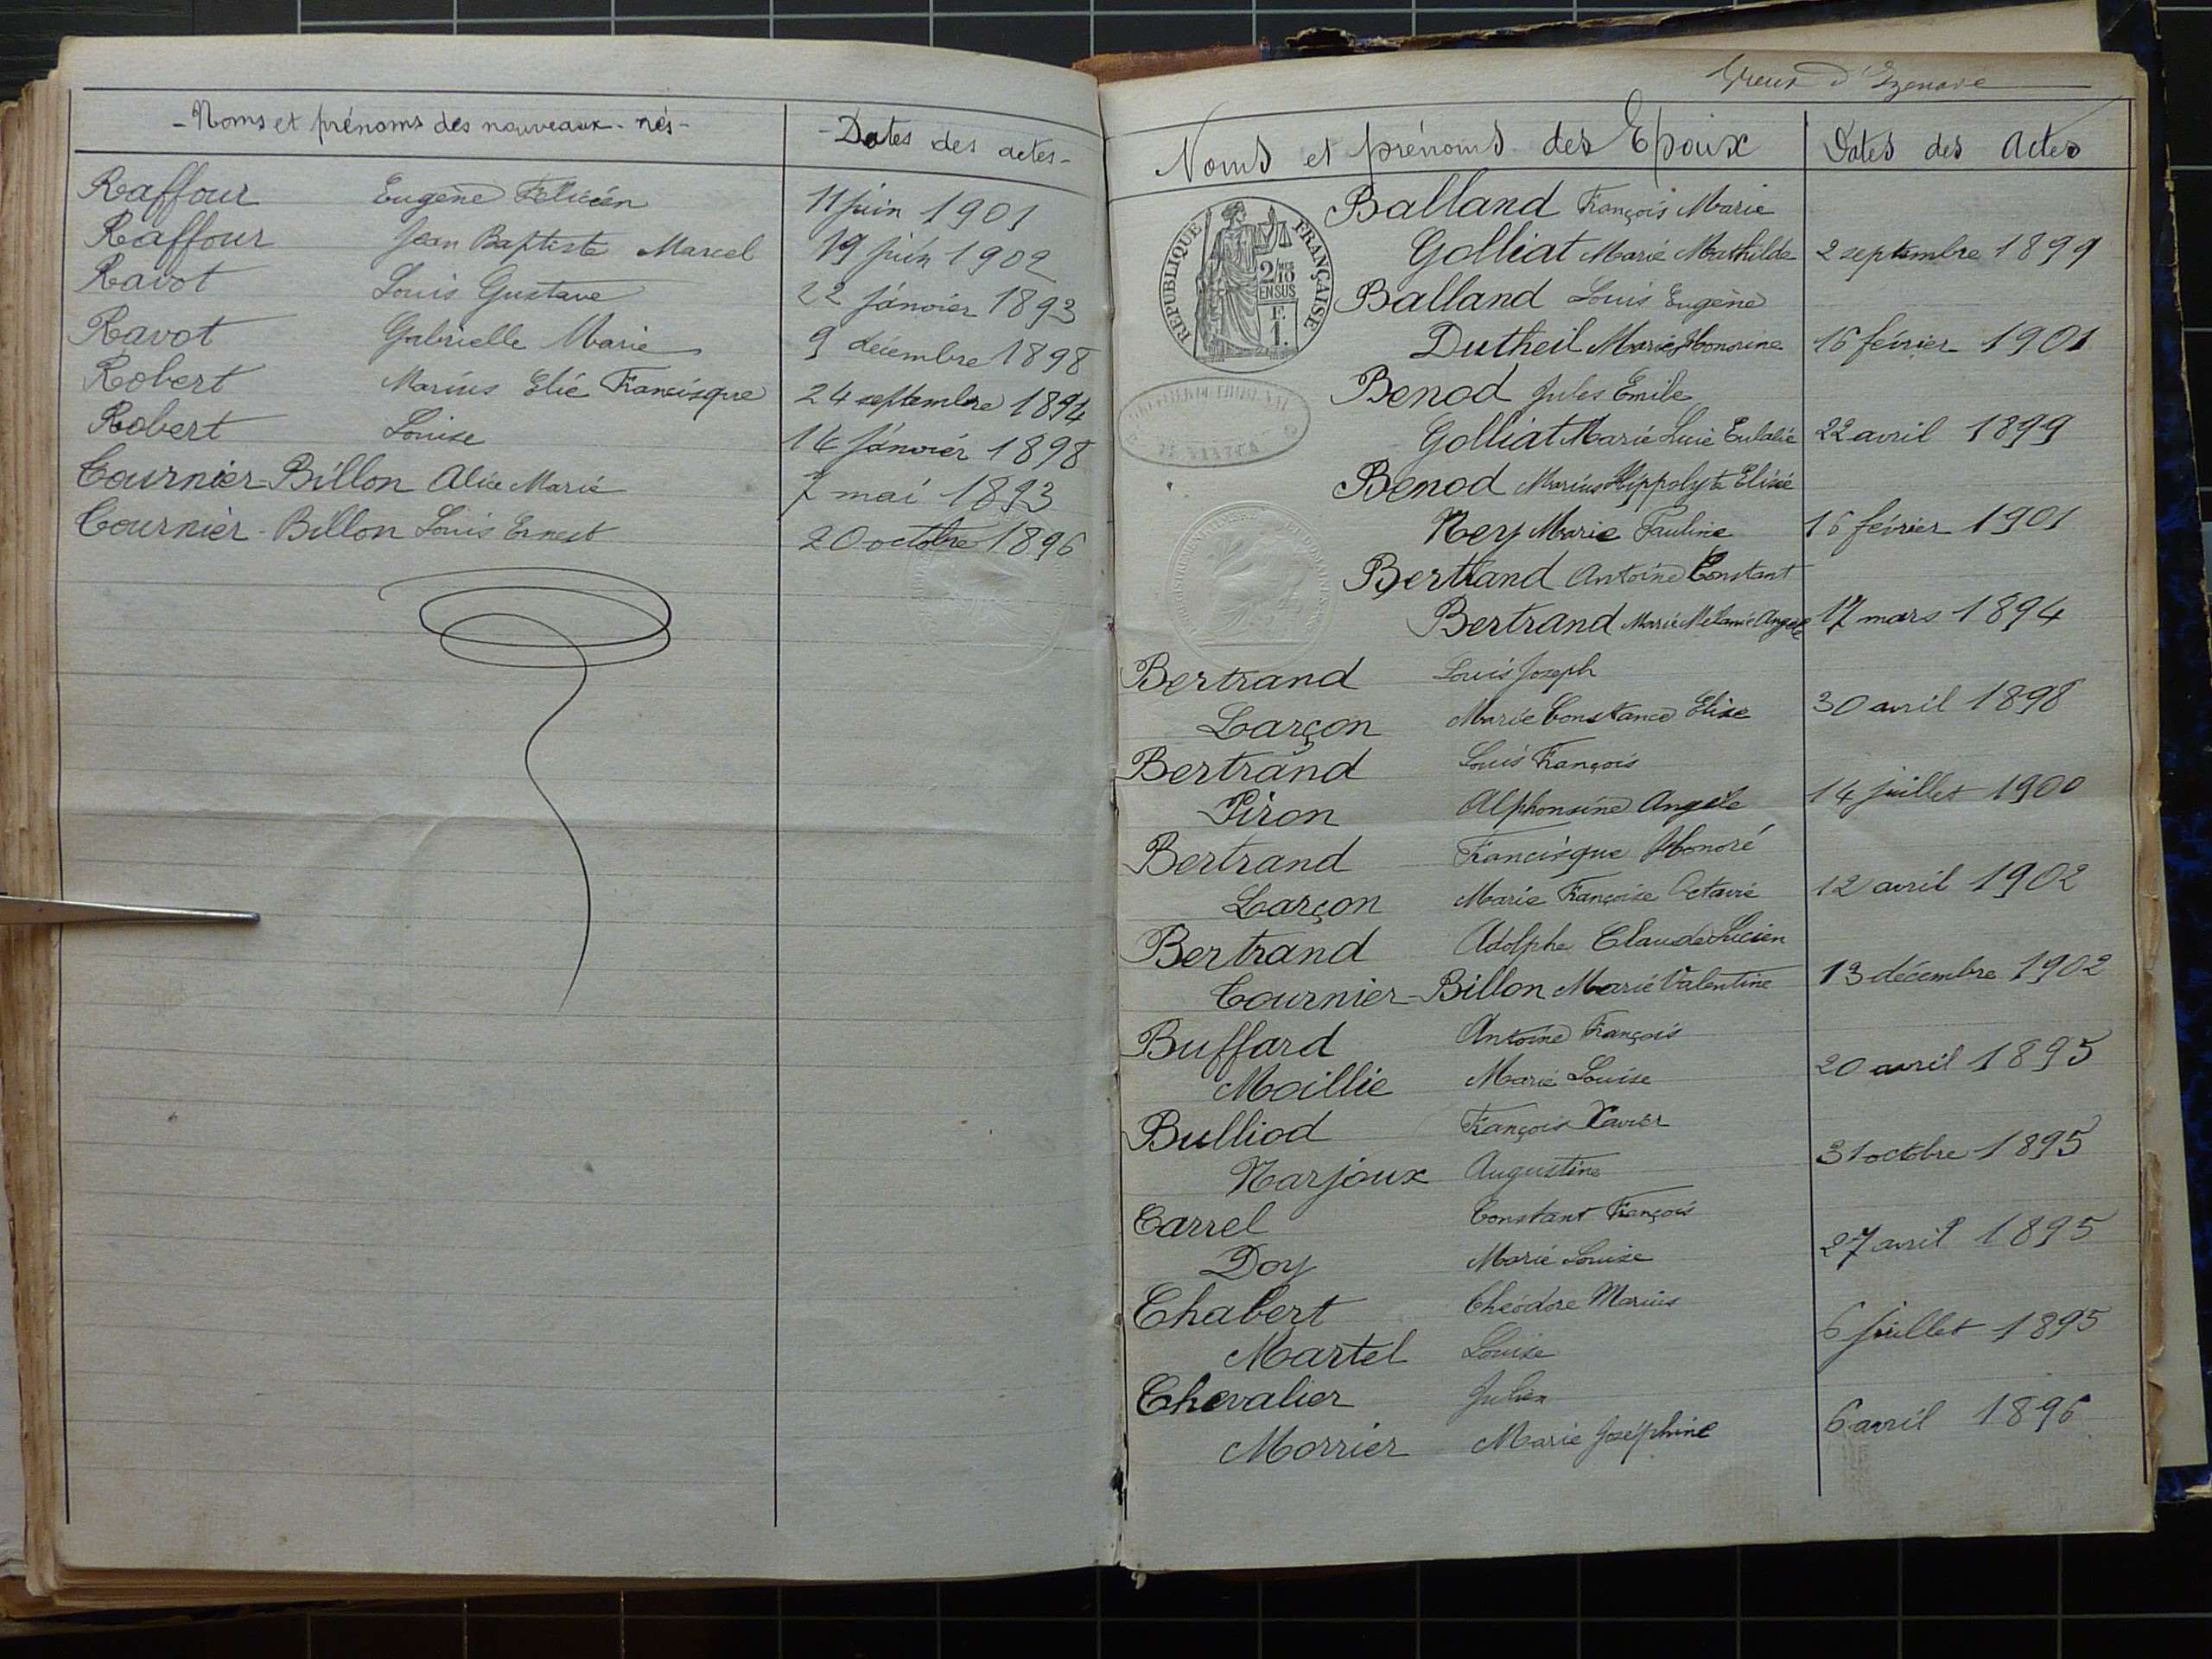 - Noms et prénoms des nouveaux-nés -
- Dates des actes -
Raffour Eugène Félicién 11 juin 1901
Raffour Jean Baptiste Marcel 19 juin 1902
Ravot Louis Gustave 22 janvier 1893
Ravot Gabrielle Marie 9 décembre 1898
Robert Marius Elie Francisque 24 septembre 1894
Robert Louise 14 janvier 1898
Tournier-Billon Alice Marie 7 mai 1893
Tournier-Billon Louis Ernest 20 octobre 1896
d'Izenave
Noms et prénoms des Epoux
Dates des Actes
RÉPUBLIQUE FRANÇAISE
2/10 MES
EN SUS
F.
1.
Balland François Marie
Golliat Marie Mathilde 2 septembre 1899
Balland Louis Eugène
Dutheil Marie Honorine 16 février 1901
Benod Jules Emile
Golliat Marie Lucie Eulalie 22 avril 1899
Benod Marius Hippolyte Elisée
Ney Marie Pauline 16 février 1901
Bertrand Antoine Constant
Bertrand Marie Mélanie Angèle 17 mars 1894
Bertrand Louis Joseph
Larçon Marie Constance Elise 30 avril 1898
Bertrand Louis François
Piron Alphonsine Angèle 14 juillet 1900
Bertrand Francisque Honoré
Larçon Marie Françoise Octavie 12 avril 1902
Bertrand Adolphe Claude Lucien
Tournier-Billon Marie Valentine 13 décembre 1902
Buffard Antoine François
Moillie Marie Louise 20 avril 1895
Bulliod François Xavier
Narjoux Augustine 31 octobre 1895
Carrel Constant François
Doy Marie Louise 27 avril 1895
Chabert Théodore Marius
Martel Louise 6 juillet 1895
Chevalier Julien
Morrier Marie Joséphine 6 avril 1896